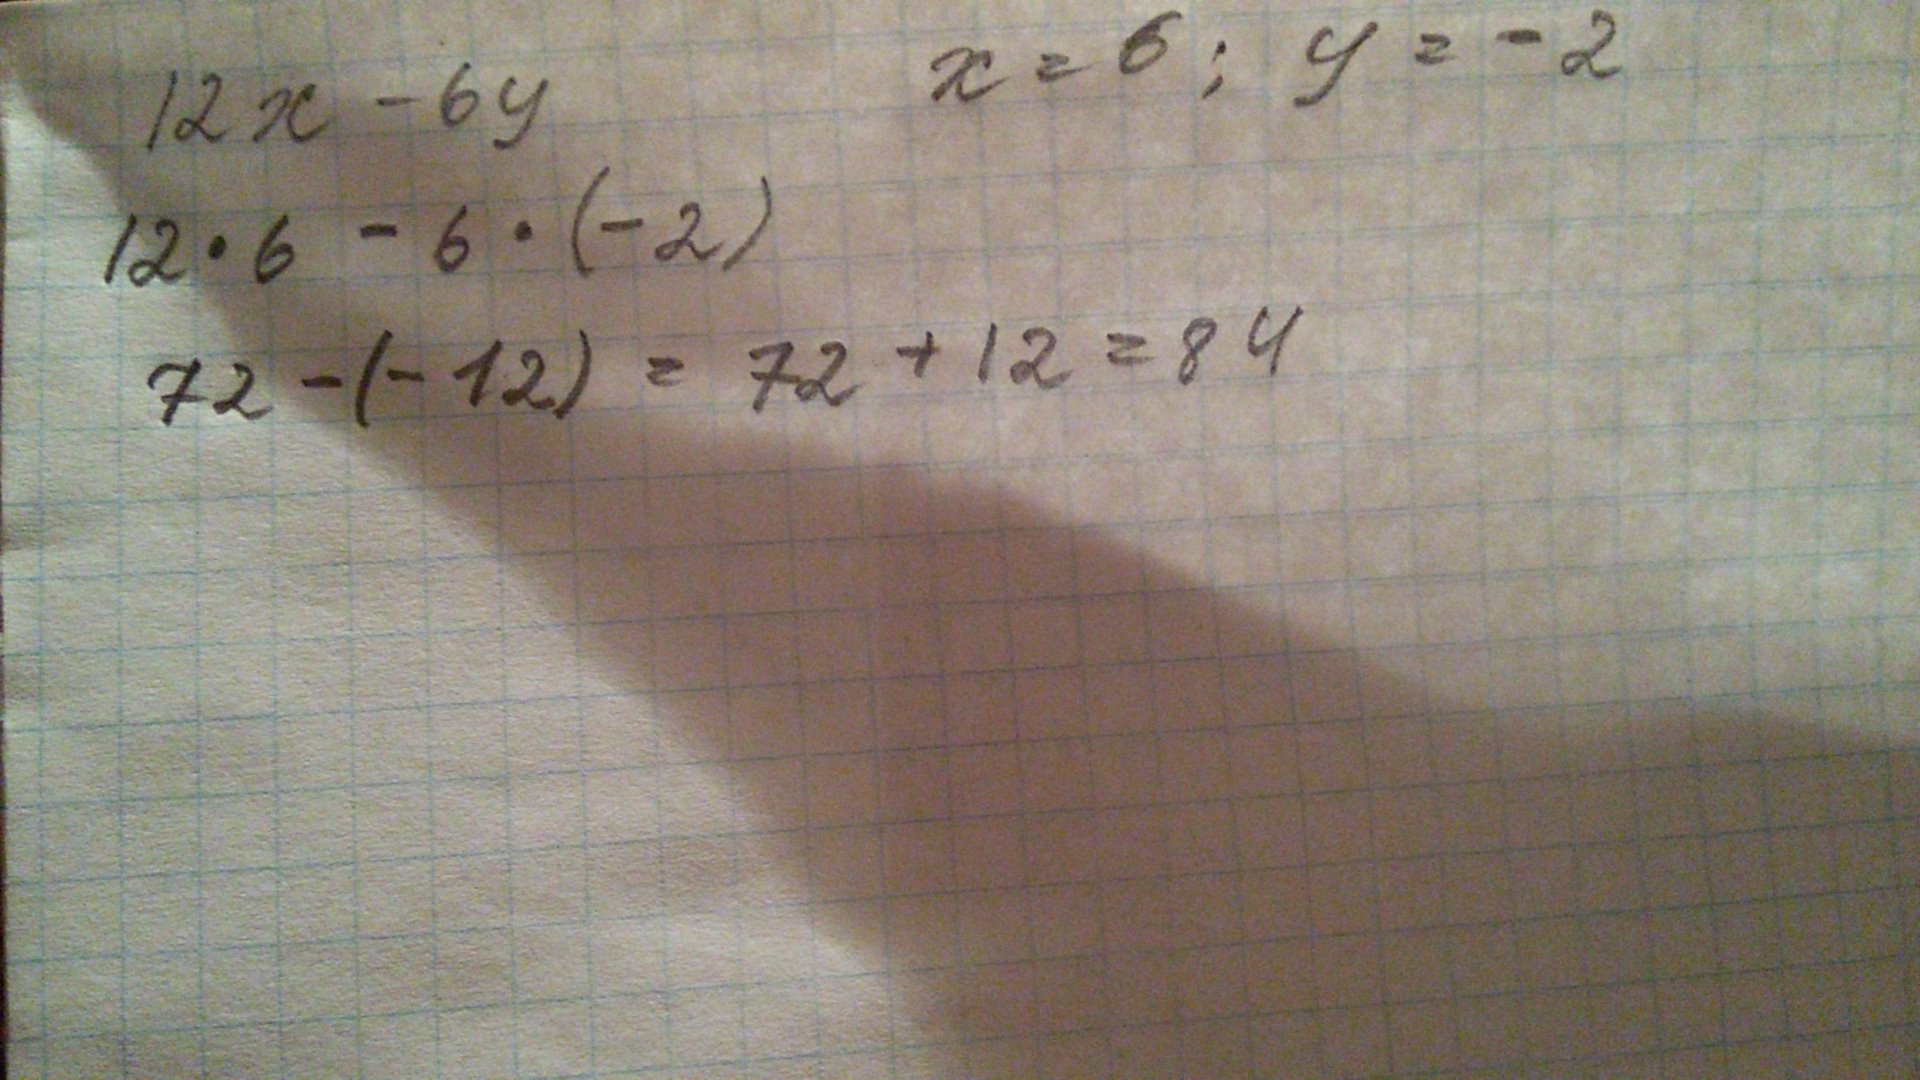 12x - 6y x = 6; y = -2
12 • 6 - 6 • (-2)
72 - (-12) = 72 + 12 = 84